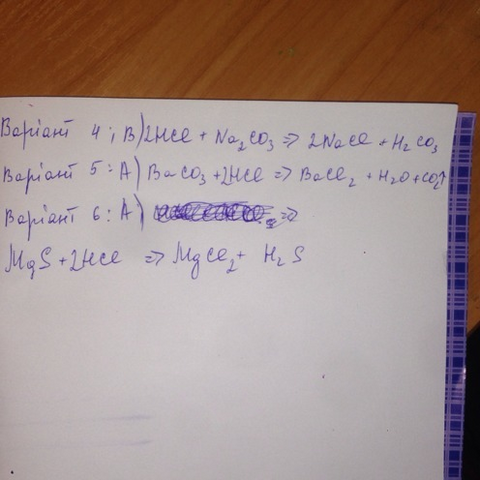 Варіант 4: В) 2HCl + Na₂CO₃ => 2NaCl + H₂CO₃
Варіант 5: А) BaCO₃ + 2HCl => BaCl₂ + H₂O + CO₂↑
Варіант 6: А) =>
MgS + 2HCl => MgCl₂ + H₂S